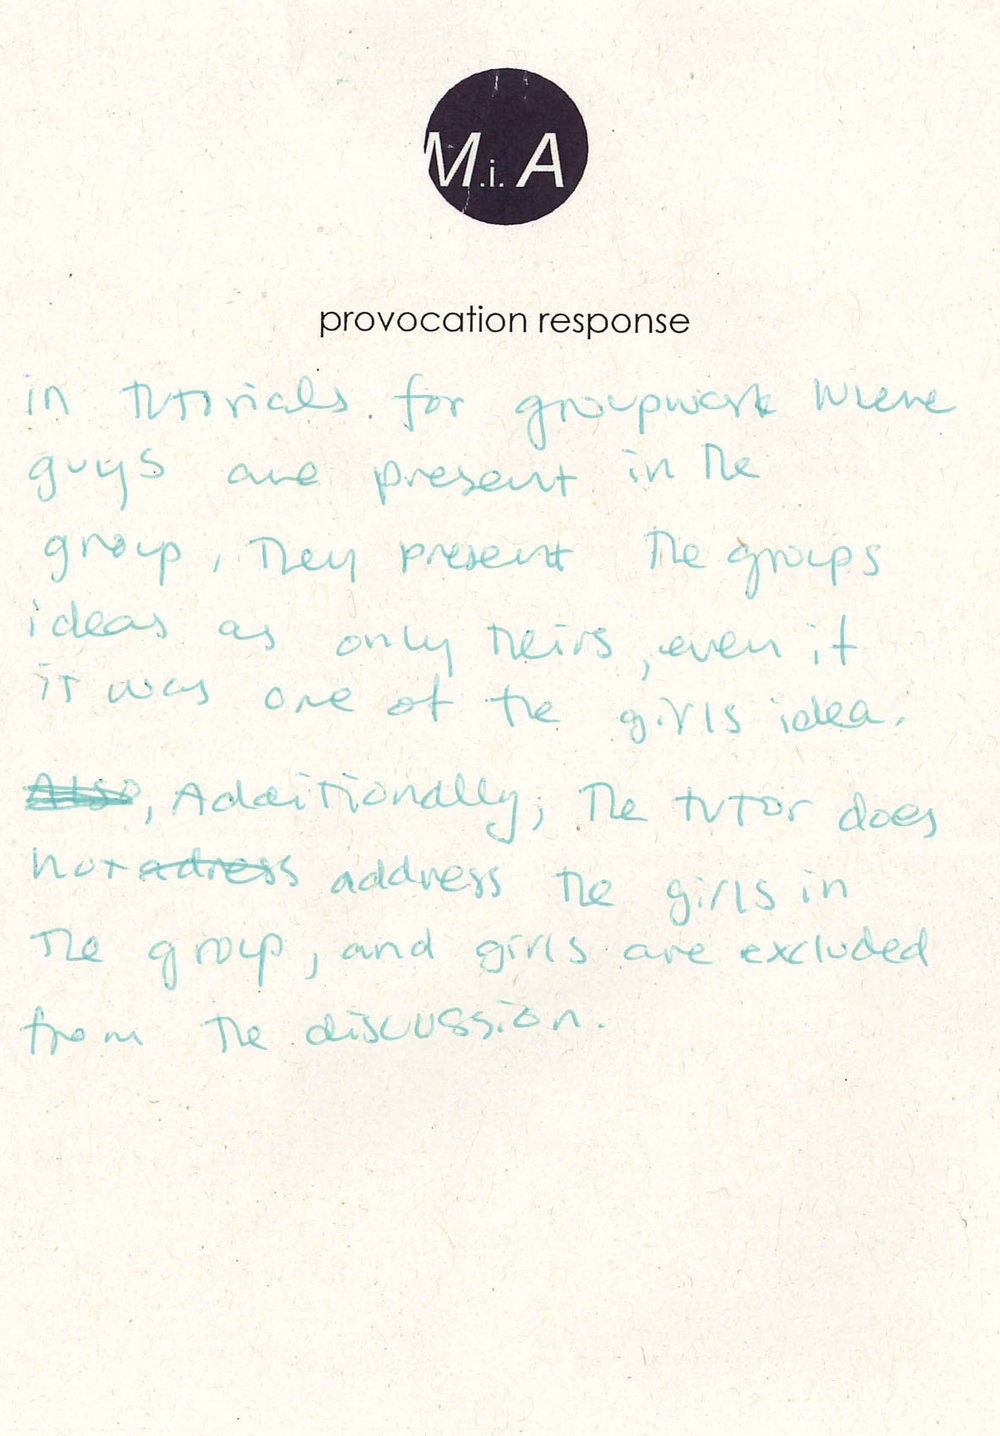 M.i.A
provocation response
in tutorials for groupwork where
guys are present in the
group, they present the groups
ideas as only theirs, even if
it was one of the girls idea.
Also, Additionally, the tutor does
not adress address the girls in
the group, and girls are excluded
from the discussion.